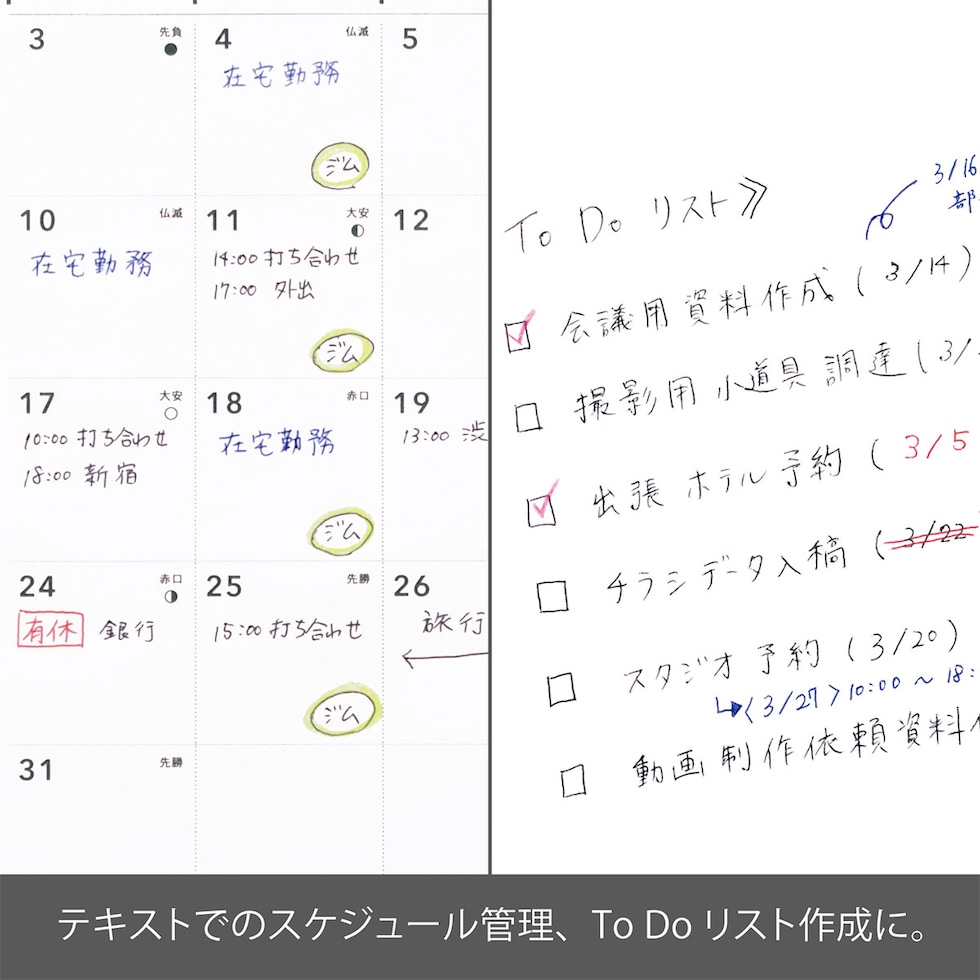 3 先負
4 仏滅
在宅勤務
ジム
5
10 仏滅
在宅勤務
11 大安
14:00 打ち合わせ
17:00 外出
ジム
12
17 大安
10:00 打ち合わせ
18:00 新宿
18 赤口
在宅勤務
ジム
19
13:00 渋
24 赤口
有休 銀行
25 先勝
15:00 打ち合わせ
ジム
26
旅行
31 先勝
3/16
部
To Do リスト》
会議用資料作成 (3/14)
撮影用小道具調達 (3/
出張ホテル予約 (3/5
チラシデータ入稿 (3/22
スタジオ予約 (3/20)
↳〈3/27〉10:00 〜 18:
動画制作依頼資料作
テキストでのスケジュール管理、To Do リスト作成に。